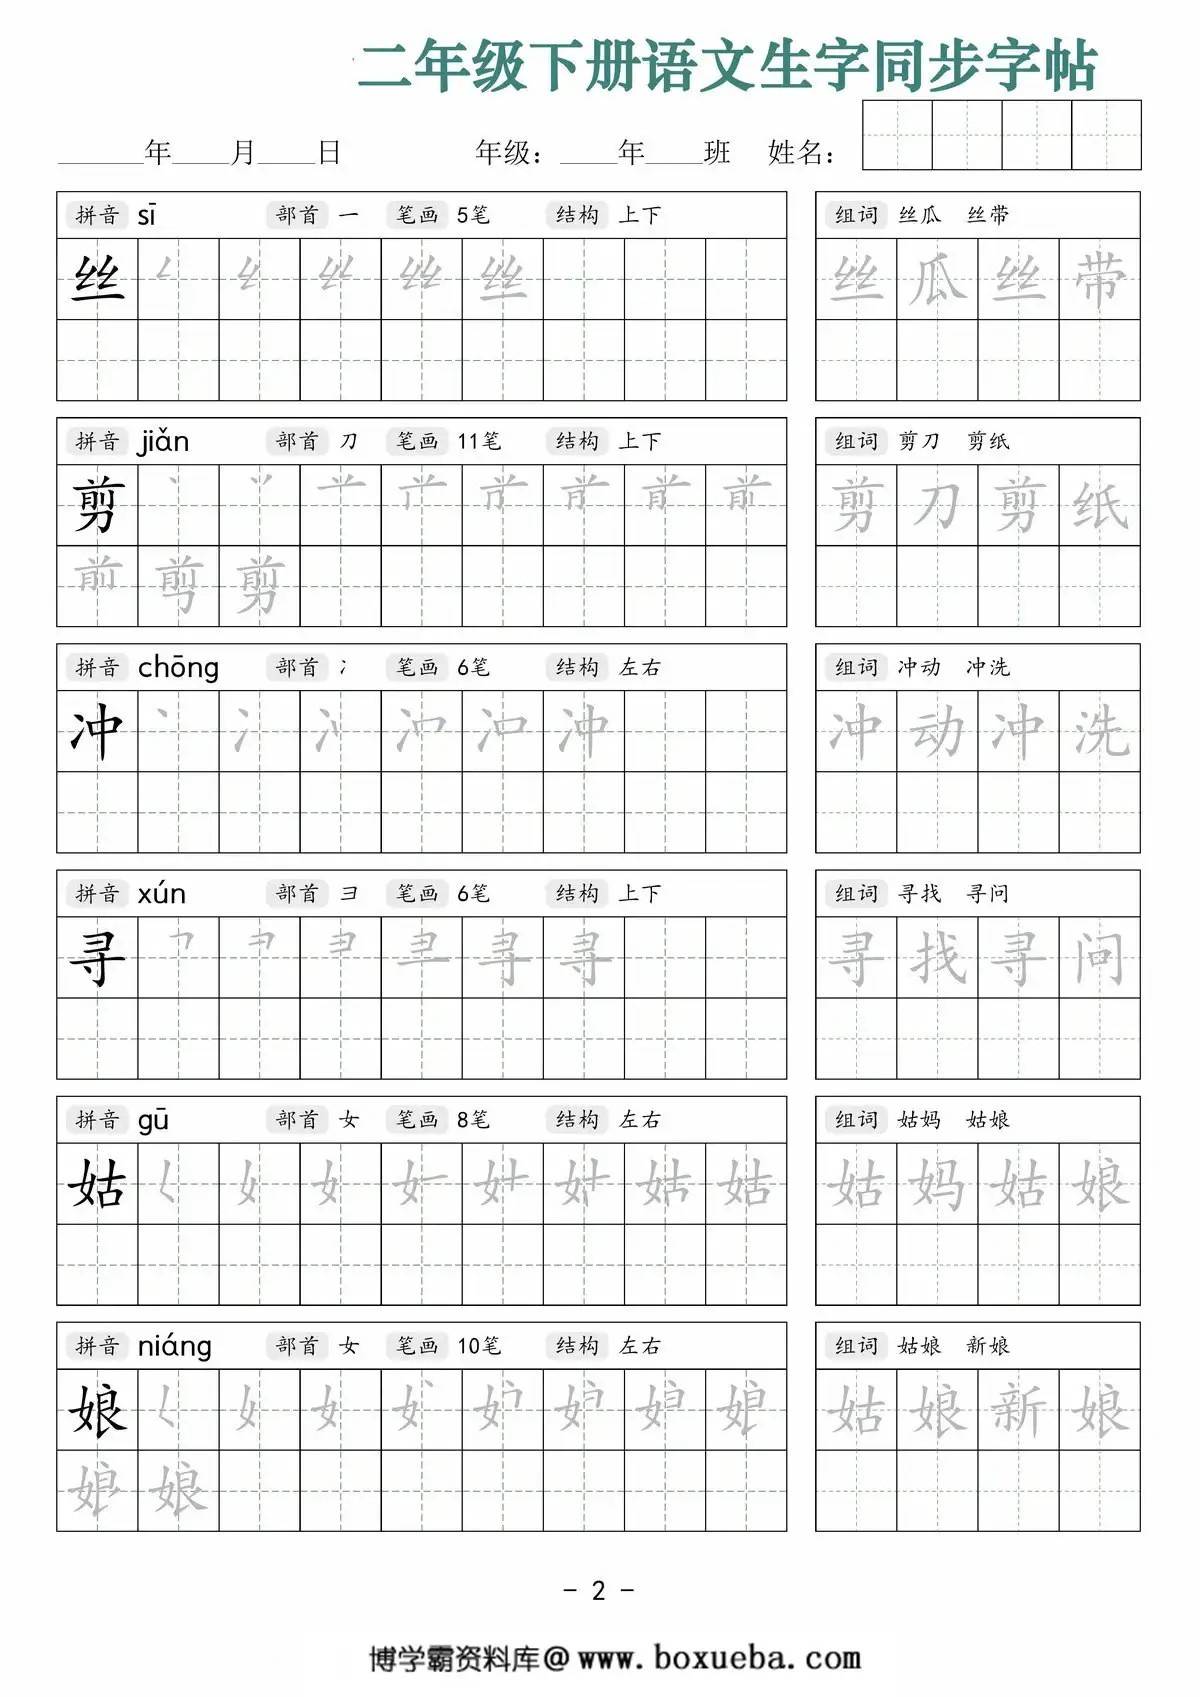 二年级下册语文生字同步字帖
年 月 日 年级： 年 班 姓名：
拼音 sī 部首 一 笔画 5笔 结构 上下 组词 丝瓜 丝带
丝 丝 丝 瓜 丝 带
拼音 jiǎn 部首 刀 笔画 11笔 结构 上下 组词 剪刀 剪纸
剪 剪 刀 剪 纸
剪
拼音 chōng 部首 冫 笔画 6笔 结构 左右 组词 冲动 冲洗
冲 冲 冲 动 冲 洗
拼音 xún 部首 彐 笔画 6笔 结构 上下 组词 寻找 寻问
寻 寻 寻 找 寻 问
拼音 gū 部首 女 笔画 8笔 结构 左右 组词 姑妈 姑娘
姑 姑 姑 妈 姑 娘
拼音 niáng 部首 女 笔画 10笔 结构 左右 组词 姑娘 新娘
娘 姑 娘 新 娘
娘
- 2 -
博学霸资料库@www.boxueba.com